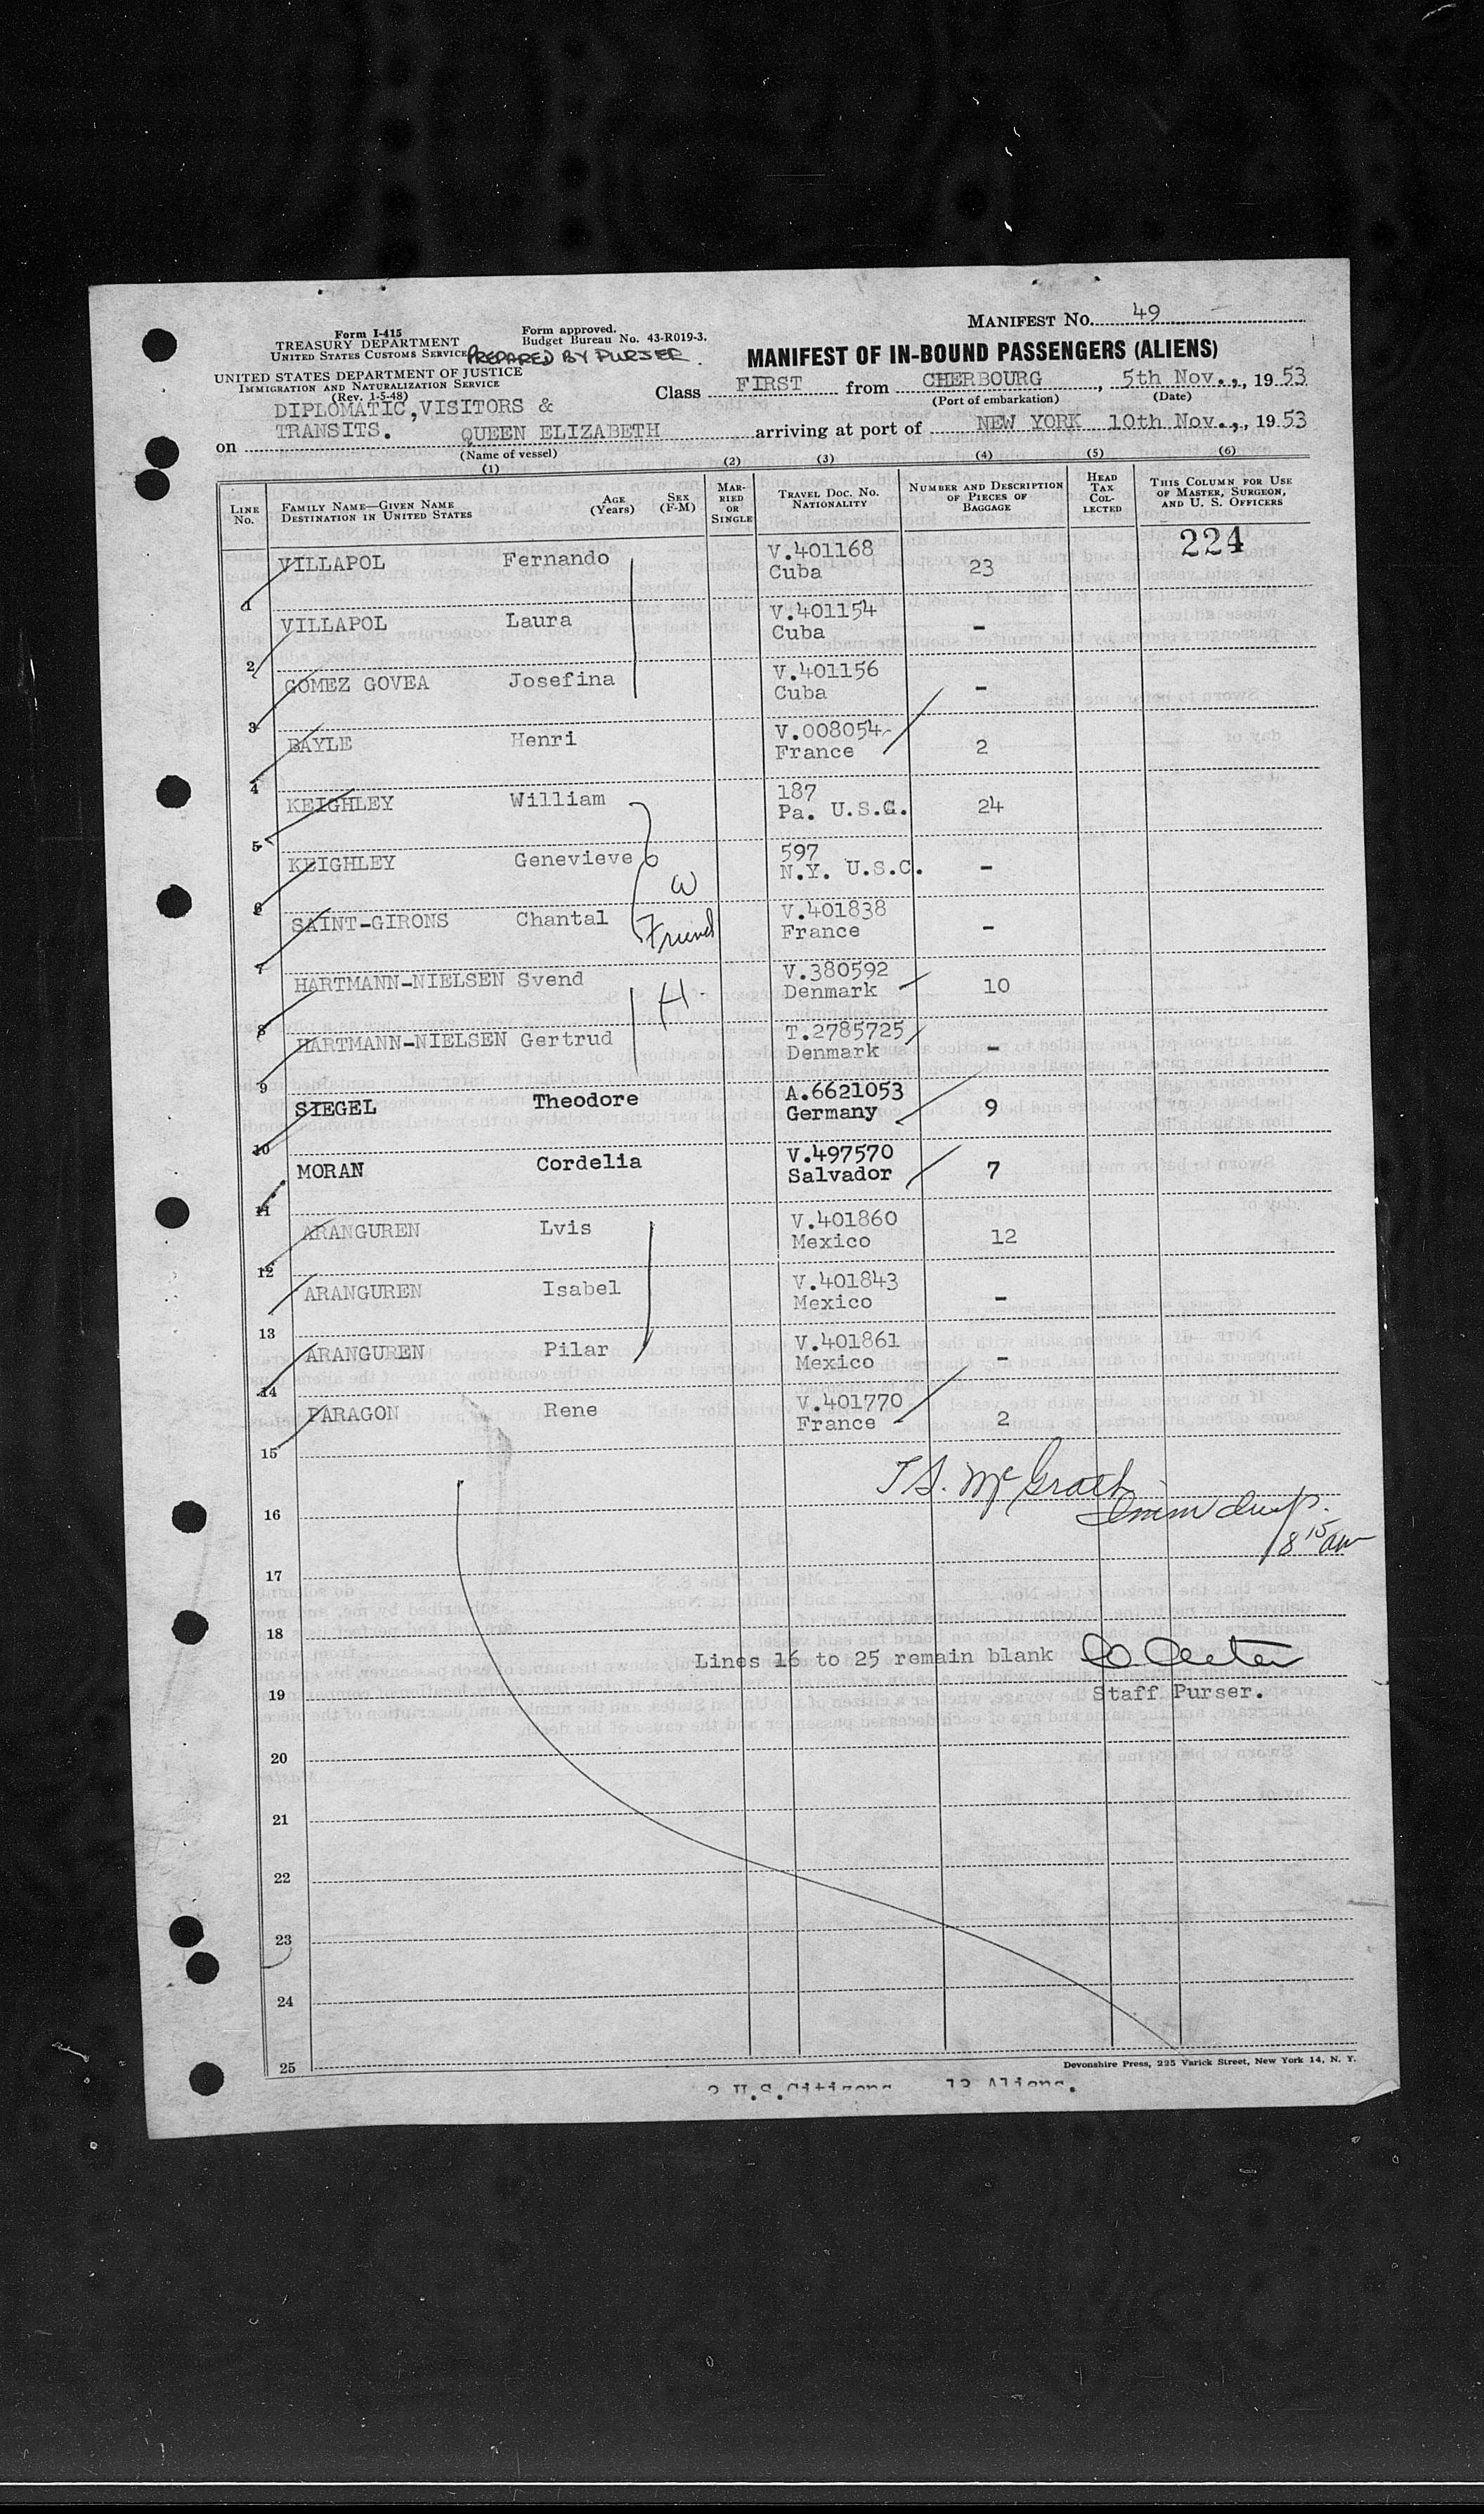 Form I-415
TREASURY DEPARTMENT
UNITED STATES CUSTOMS SERVICE
Form approved.
Budget Bureau No. 43-R019-3.
PREPARED BY PURSER.
MANIFEST NO. 49
MANIFEST OF IN-BOUND PASSENGERS (ALIENS)
UNITED STATES DEPARTMENT OF JUSTICE
IMMIGRATION AND NATURALIZATION SERVICE
(Rev. 1-5-48)
Class FIRST from CHERBOURG, 5th Nov., 1953
(Port of embarkation) (Date)
DIPLOMATIC, VISITORS &
TRANSITS.
on QUEEN ELIZABETH arriving at port of NEW YORK 10th Nov., 1953
(Name of vessel)
(1) (2) (3) (4) (5) (6)
LINE NO.
FAMILY NAME—GIVEN NAME
DESTINATION IN UNITED STATES
AGE (Years)
SEX (F-M)
MARRIED OR SINGLE
TRAVEL DOC. NO.
NATIONALITY
NUMBER AND DESCRIPTION OF PIECES OF BAGGAGE
HEAD TAX COLLECTED
THIS COLUMN FOR USE OF MASTER, SURGEON, AND U. S. OFFICERS
224
1 VILLAPOL Fernando V.401168 Cuba 23
2 VILLAPOL Laura V.401154 Cuba -
3 GOMEZ GOVEA Josefina V.401156 Cuba -
4 BAYLE Henri V.008054 France 2
5 KEIGHLEY William 187 Pa. U.S.C. 24
6 KEIGHLEY Genevieve 597 N.Y. U.S.C. -
W
7 SAINT-GIRONS Chantal Friend V.401838 France -
8 HARTMANN-NIELSEN Svend H. V.380592 Denmark 10
9 HARTMANN-NIELSEN Gertrud T.2785725 Denmark -
10 SIEGEL Theodore A.6621053 Germany 9
11 MORAN Cordelia V.497570 Salvador 7
12 ARANGUREN Lvis V.401860 Mexico 12
13 ARANGUREN Isabel V.401843 Mexico -
14 ARANGUREN Pilar V.401861 Mexico -
15 PARAGON Rene V.401770 France 2
T.S. McGrath
16
Imm Insp.
8 15 am
17
18
Lines 16 to 25 remain blank
19
Staff Purser.
20
21
22
23
24
25
Devonshire Press, 225 Varick Street, New York 14, N. Y.
2 U.S.Citizens 13 Aliens.